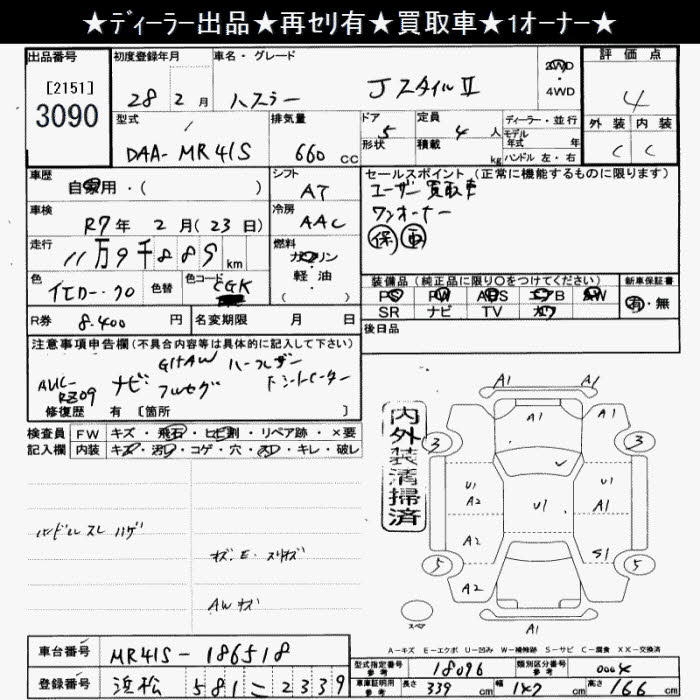 ★ディーラー出品★再セリ有★買取車★1オーナー★
出品番号 初度登録年月 車名・グレード 評価点
[2151]
3090
28年2月 ハスラー JスタイルⅡ 2WD・4WD 4
型式 排気量 ドア 定員 ディーラー・並行 外装 内装
DAA-MR41S 660cc 5 4人 モデル年式 年 C C
形状 積載 kg ハンドル 左・右
車歴 シフト セールスポイント(正常に機能するものに限ります)
自家用・( ) AT ユーザー買取車
車検 冷房 ワンオーナー
R7年2月(23日) AAC 保 画
走行 燃料
11万9千889km ガソリン 軽油・( )
色 色替 色コード 装備品(純正品に限り○をつけてください) 新車保証書
イエロー・クロ CGK PS PW ABS エアB AW 有・無
SR ナビ TV カワ
R券 8.400円 名変期限 月 日 後日品
注意事項申告欄(不具合内容等は具体的に記入して下さい)
ナビ フルセグ
修復歴 有[箇所 ]
検査員 FW キズ・飛石・ヒビ割・リペア跡・×要
記入欄 内装 キズ・汚レ・コゲ・穴・スレ・キレ・破レ
ハンドルスレ ハゲ
キズ.E.スリキズ
AWキズ
内外装清掃済
A1 A1
A1 A1
3 3
U1 A2 U1 A1
A2 S1
5 5
A2
スペア A1
A-キズ E-エクボ U-凹み W-補修跡 S-サビ C-腐食 XX-交換済
車台番号 MR41S-186518
型式指定番号 参考 18096 類別区分番号 参考 0004
登録番号 浜松 581 こ 2339
車庫証明用 参考 長さ 339cm 幅 147cm 高さ 166cm